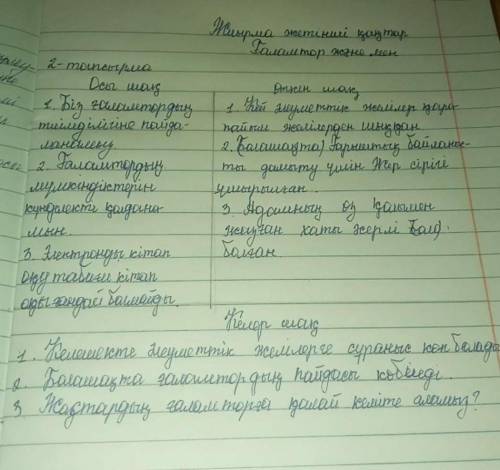 Жиырма жетінші қаңтар
Ғаламтор және мен
2-тапсырма
Осы шақ
1. Біз ғаламтордың
тиімділігіне пайда-
ланбаймыз
2. Ғаламтордың
мүмкіндіктерін
күнделікті қолдана-
мын.
3. Электронды кітап
оқу табиғи кітап
оқығандай болмайды.
Өткен шақ
1. Кей әлеуметтік желілер қара-
пайым желілерден шыққан
2. (Болашақта) Ғарыштық байланыс-
ты дамыту үшін Жер серігі
ұшырылған.
3. Адамның өз қолымен
жазған хаты әсерлі (бол)
болған.
Келер шақ
1. Келешекте әлеуметтік желілерге сұраныс көп болады
2. Болашақта ғаламтордың пайдасы көбейеді.
3. Жастардың ғаламторға қалай келіте аламыз?